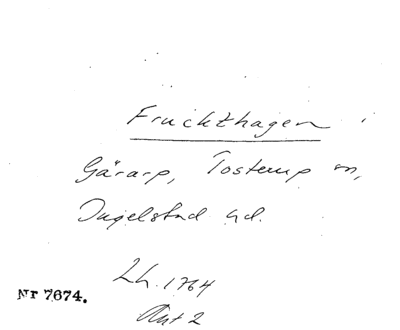 Fruckthagen i
Gärarp, Tosterup sn,
Ingelstad hd.
Lh. 1764
Akt 2
Nr 7674.